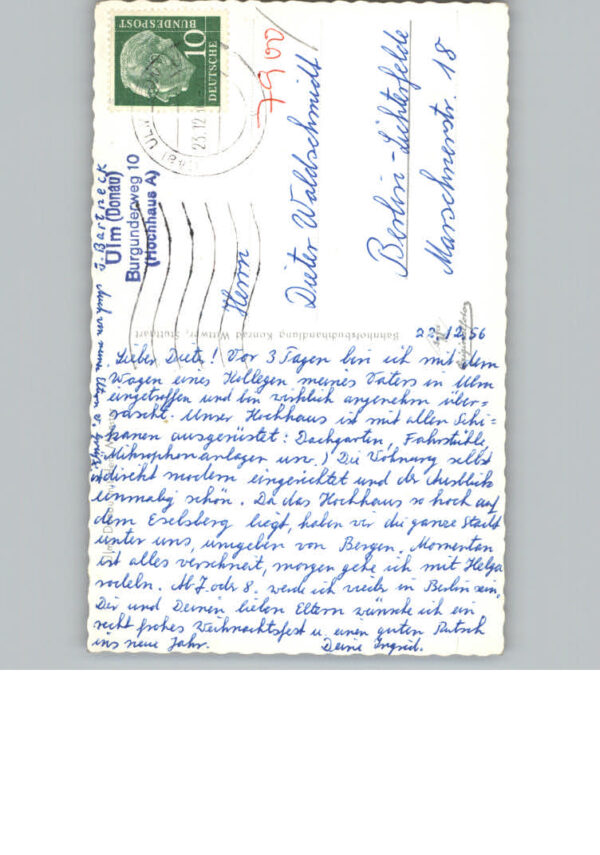 DEUTSCHE
BUNDESPOST
10
23.12.
7900
Ulm (Donau)
Burgunderweg 10
(Hochhaus A)
Herrn
Dieter Waldschmidt
Berlin-Lichterfelde
Marschnerstr. 18
Bahnhofsbuchhandlung Konrad Wittwer, Stuttgart
22.12.56
Lieber Dieter! Vor 3 Tagen bin ich mit dem
Wagen eines Kollegen meines Vaters in Ulm
eingetroffen und bin wirklich angenehm über-
rascht. Unser Hochhaus ist mit allen Schi-
kanen ausgerüstet: Dachgarten, Fahrstühle,
Mikrophonanlagen usw.! Die Wohnung selbst
ist direkt modern eingerichtet und der Ausblick
einmalig schön. Da das Hochhaus so hoch auf
dem Eselsberg liegt, haben wir die ganze Stadt
unter uns, umgeben von Bergen. Momentan
ist alles verschneit, morgen gehe ich mit Helga
rodeln. Ab 7. oder 8. werde ich wieder in Berlin sein.
Dir und Deinen lieben Eltern wünsche ich ein
recht frohes Weihnachtsfest u. einen guten Rutsch
ins neue Jahr.
Deine Ingrid.